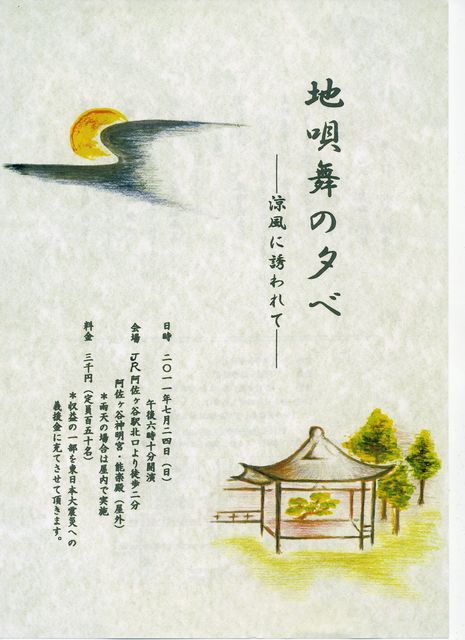 地唄舞の夕べ
――涼風に誘われて――
日時 二〇一一年七月二四日（日）
午後六時十分開演
会場 JR阿佐ヶ谷駅北口より徒歩二分
阿佐ヶ谷神明宮・能楽殿（屋外）
＊雨天の場合は屋内で実施
料金 三千円（定員百五十名）
＊収益の一部を東日本大震災への
義援金に充てさせて頂きます。